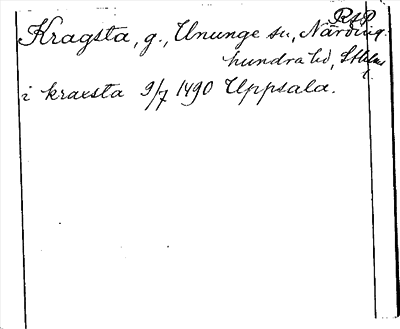 RAP
Kragsta, g., Ununge sn, Närding-
hundra hd, Sthlms
i kraxsta 9/7 1490 Uppsala.